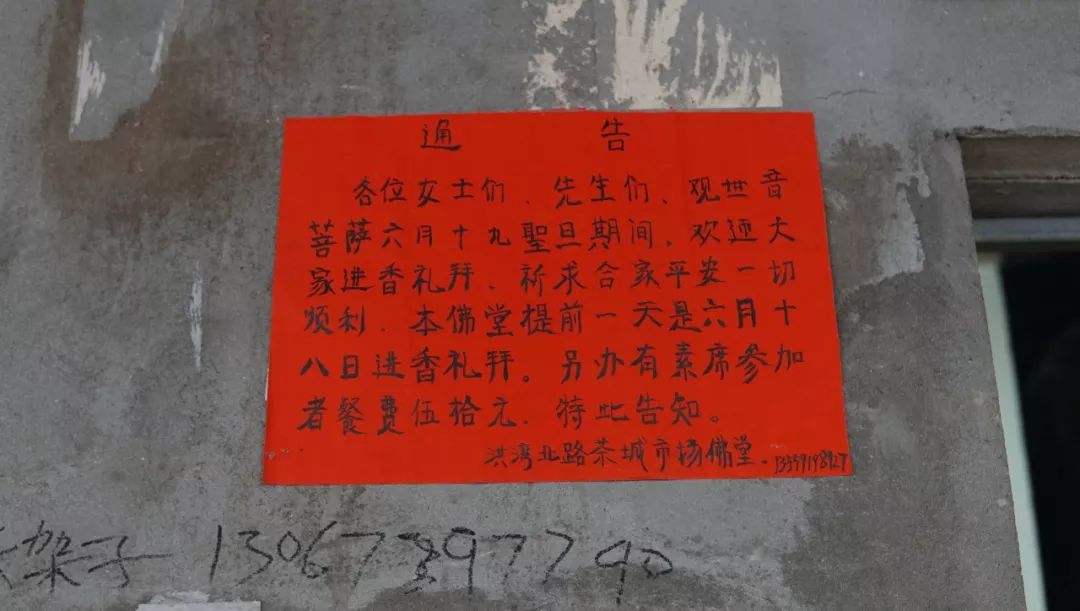 通 告
各位女士们、先生们、观世音
菩萨六月十九聖旦期间、欢迎大
家进香礼拜、祈求合家平安一切
顺利、本佛堂提前一天是六月十
八日进香礼拜。另办有素席参加
者餐费伍拾元、特此告知。
洪湾北路茶城市场佛堂。
架子 13067297790